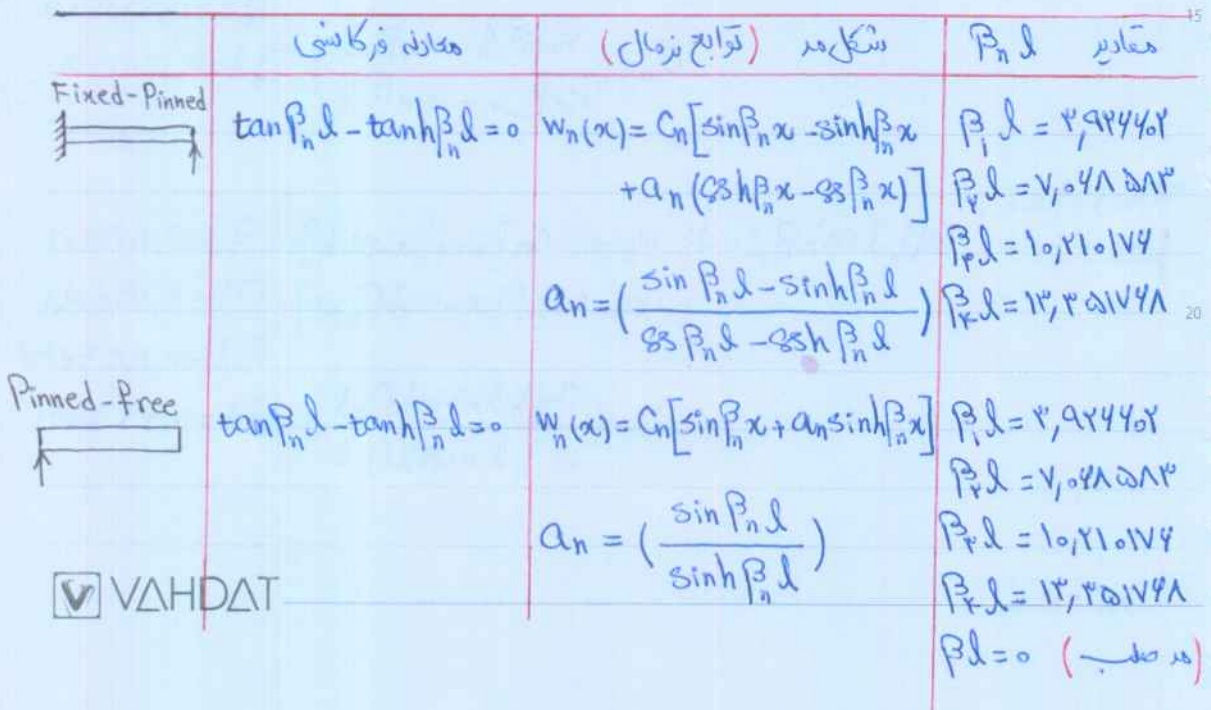 معادله فرکانسی شکل مد (توابع نرمال) مقادیر βₙl
Fixed-Pinned
tan βₙl - tanh βₙl = 0
wₙ(x) = Cₙ[sin βₙx - sinh βₙx
+ aₙ(cosh βₙx - cos βₙx)]
aₙ = (sin βₙl - sinh βₙl / cos βₙl - cosh βₙl)
β₁l = ۳,۹۲۶۶۰۲
β₂l = ۷,۰۶۸۵۸۳
β₃l = ۱۰,۲۱۰۱۷۶
β₄l = ۱۳,۳۵۱۷۶۸
Pinned-free
tan βₙl - tanh βₙl = 0
wₙ(x) = Cₙ[sin βₙx + aₙ sinh βₙx]
aₙ = (sin βₙl / sinh βₙl)
β₁l = ۳,۹۲۶۶۰۲
β₂l = ۷,۰۶۸۵۸۳
β₃l = ۱۰,۲۱۰۱۷۶
β₄l = ۱۳,۳۵۱۷۶۸
βl = 0 (مد صلب)
VAHDAT
15
20